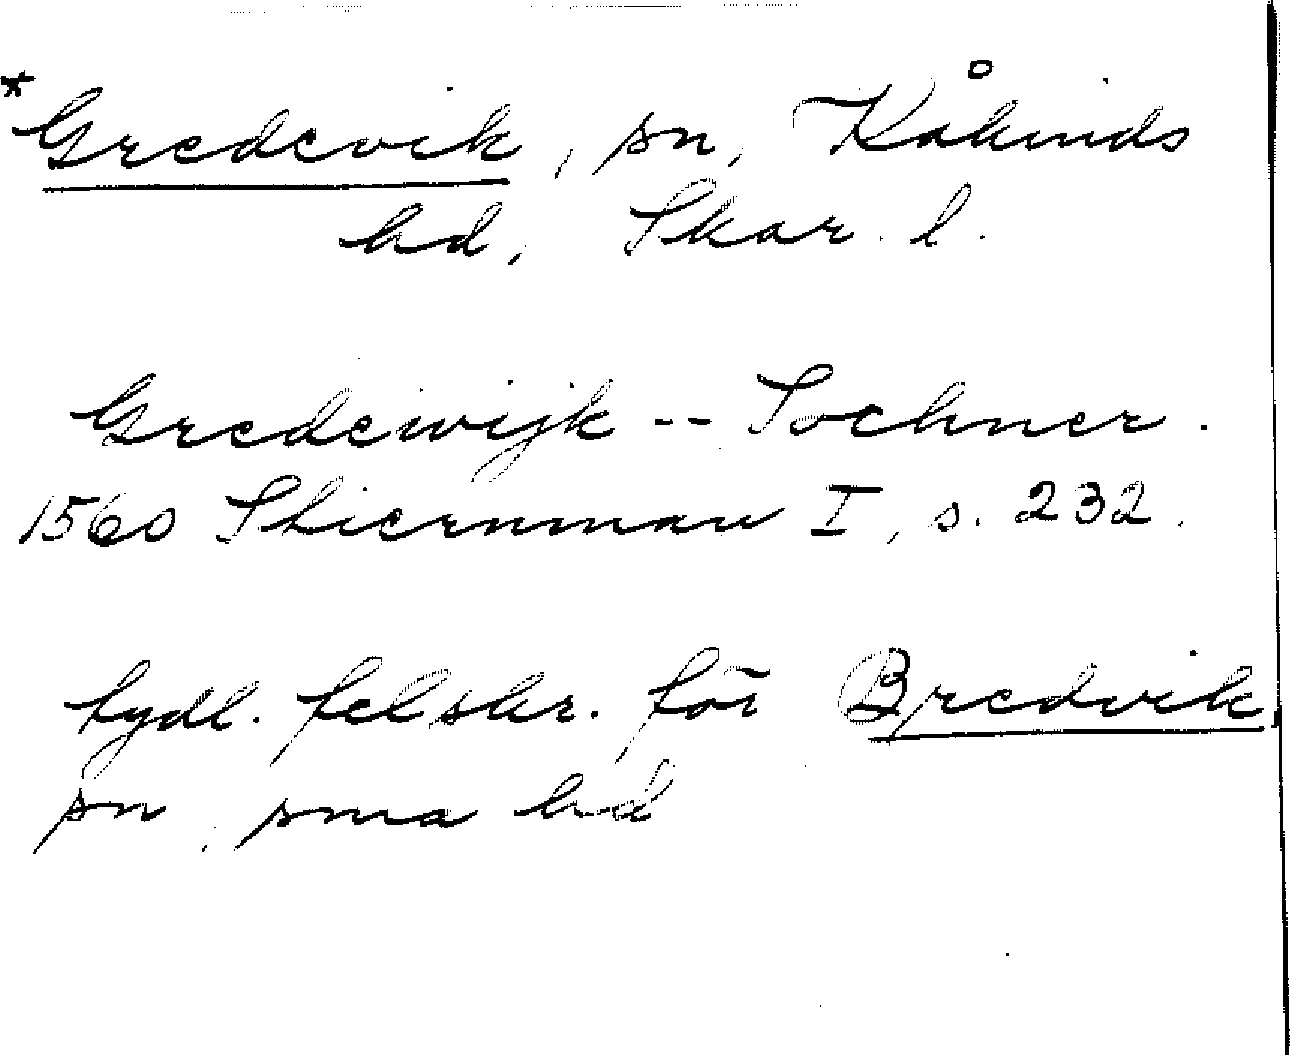 *Gredevik, sn, Kåkinds
hd, Skar. l.
Gredewijk -- Sochner.
1560 Stiernman I, s. 232.
tydl. felskr. för Bredvik
sn, sma hd